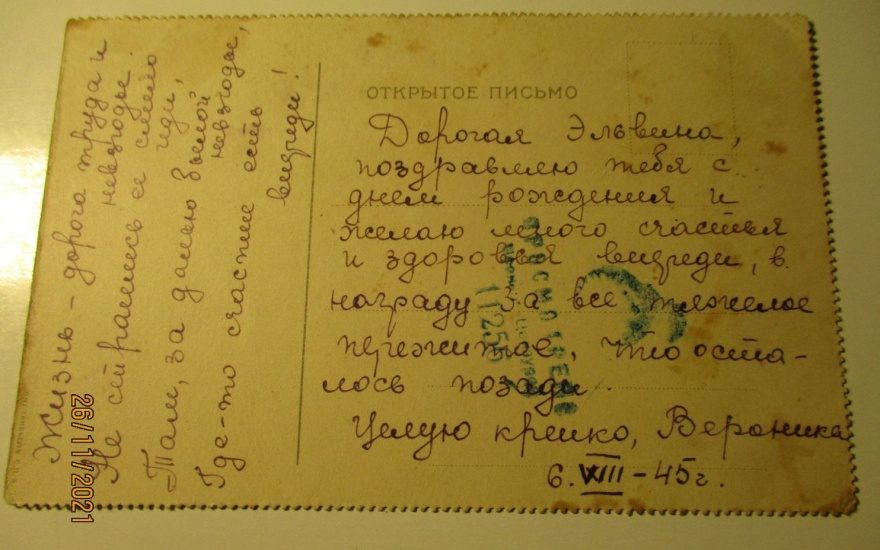 Жизнь - дорога труда и
невзгодье.
Не страшись ее смело
иди,
Там, за далью былой
невзгодье,
Где-то счастье есть
впереди!
ОТКРЫТОЕ ПИСЬМО
Дорогая Эльвина,
поздравляю тебя с
днем рождения и
желаю много счастья
и здоровья впереди, в
награду за все тяжелое
пережитое, что оста-
лось позади.
Целую крепко, Вероника
6.VIII-45г.
ПРОСМОТРЕНО
26/11/2021